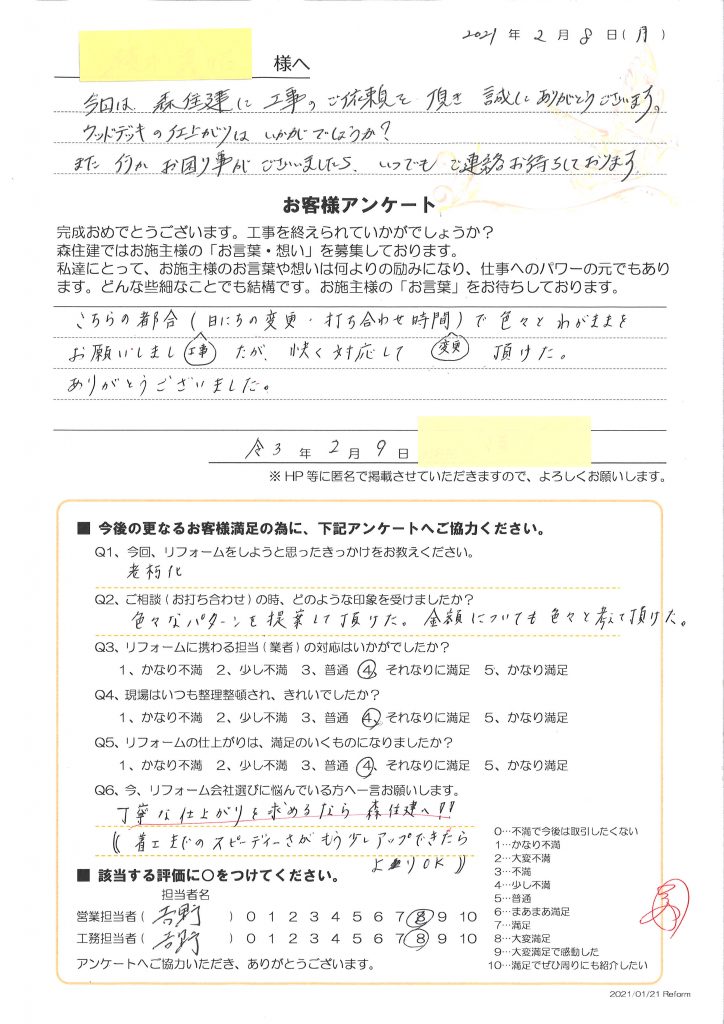 2021年2月8日(月)
様へ
今回は 森住建に工事のご依頼を頂き 誠にありがとうございます。
ウッドデッキの仕上がりは いかがでしょうか？
また 何か お困り事がございましたら、いつでも ご連絡お待ちしております。
お客様アンケート
完成おめでとうございます。工事を終えられていかがでしょうか？
森住建ではお施主様の「お言葉・想い」を募集しております。
私達にとって、お施主様のお言葉や想いは何よりの励みになり、仕事へのパワーの元でもあり
ます。どんな些細なことでも結構です。お施主様の「お言葉」をお待ちしております。
こちらの都合(日にちの変更・打ち合わせ時間)で色々とわがままを
お願いしまし 工事 たが、快く対応して 変更 頂けた。
ありがとうございました。
令3年2月9日
※HP等に匿名で掲載させていただきますので、よろしくお願いします。
■ 今後の更なるお客様満足の為に、下記アンケートへご協力ください。
Q1、今回、リフォームをしようと思ったきっかけをお教えください。
老朽化
Q2、ご相談(お打ち合わせ)の時、どのような印象を受けましたか？
色々なパターンを提案して頂けた。金額についても色々と考えて頂けた。
Q3、リフォームに携わる担当(業者)の対応はいかがでしたか？
1、かなり不満 2、少し不満 3、普通 4、それなりに満足 5、かなり満足
Q4、現場はいつも整理整頓され、きれいでしたか？
1、かなり不満 2、少し不満 3、普通 4、それなりに満足 5、かなり満足
Q5、リフォームの仕上がりは、満足のいくものになりましたか？
1、かなり不満 2、少し不満 3、普通 4、それなりに満足 5、かなり満足
Q6、今、リフォーム会社選びに悩んでいる方へ一言お願いします。
丁寧な仕上がりを求めるなら 森住建へ!!
(( 着工までのスピーディーさがもう少しアップできたら
よりOK ))
■ 該当する評価に○をつけてください。
担当者名
営業担当者( 吉野 ) 0 1 2 3 4 5 6 7 8 9 10
工務担当者( 吉野 ) 0 1 2 3 4 5 6 7 8 9 10
アンケートへご協力いただき、ありがとうございます。
0…不満で今後は取引したくない
1…かなり不満
2…大変不満
3…不満
4…少し不満
5…普通
6…まあまあ満足
7…満足
8…大変満足
9…大変満足で感動した
10…満足でぜひ周りにも紹介したい
2021/01/21 Reform